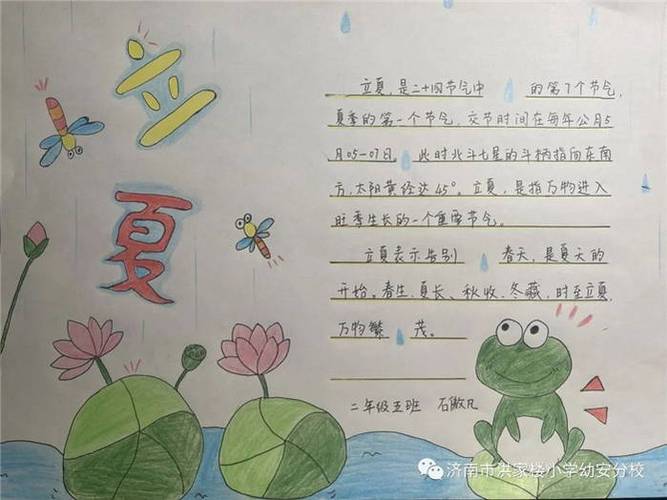 立夏
立夏，是二十四节气中的第7个节气，
夏季的第一个节气，交节时间在每年公月5
月05-07日。此时北斗七星的斗柄指向东南
方，太阳黄经达45°。立夏，是指万物进入
旺季生长的一个重要节气。
立夏表示告别春天，是夏天的
开始。春生、夏长、秋收、冬藏，时至立夏，
万物繁茂。
二年级五班 石傲凡
济南市洪家楼小学幼安分校